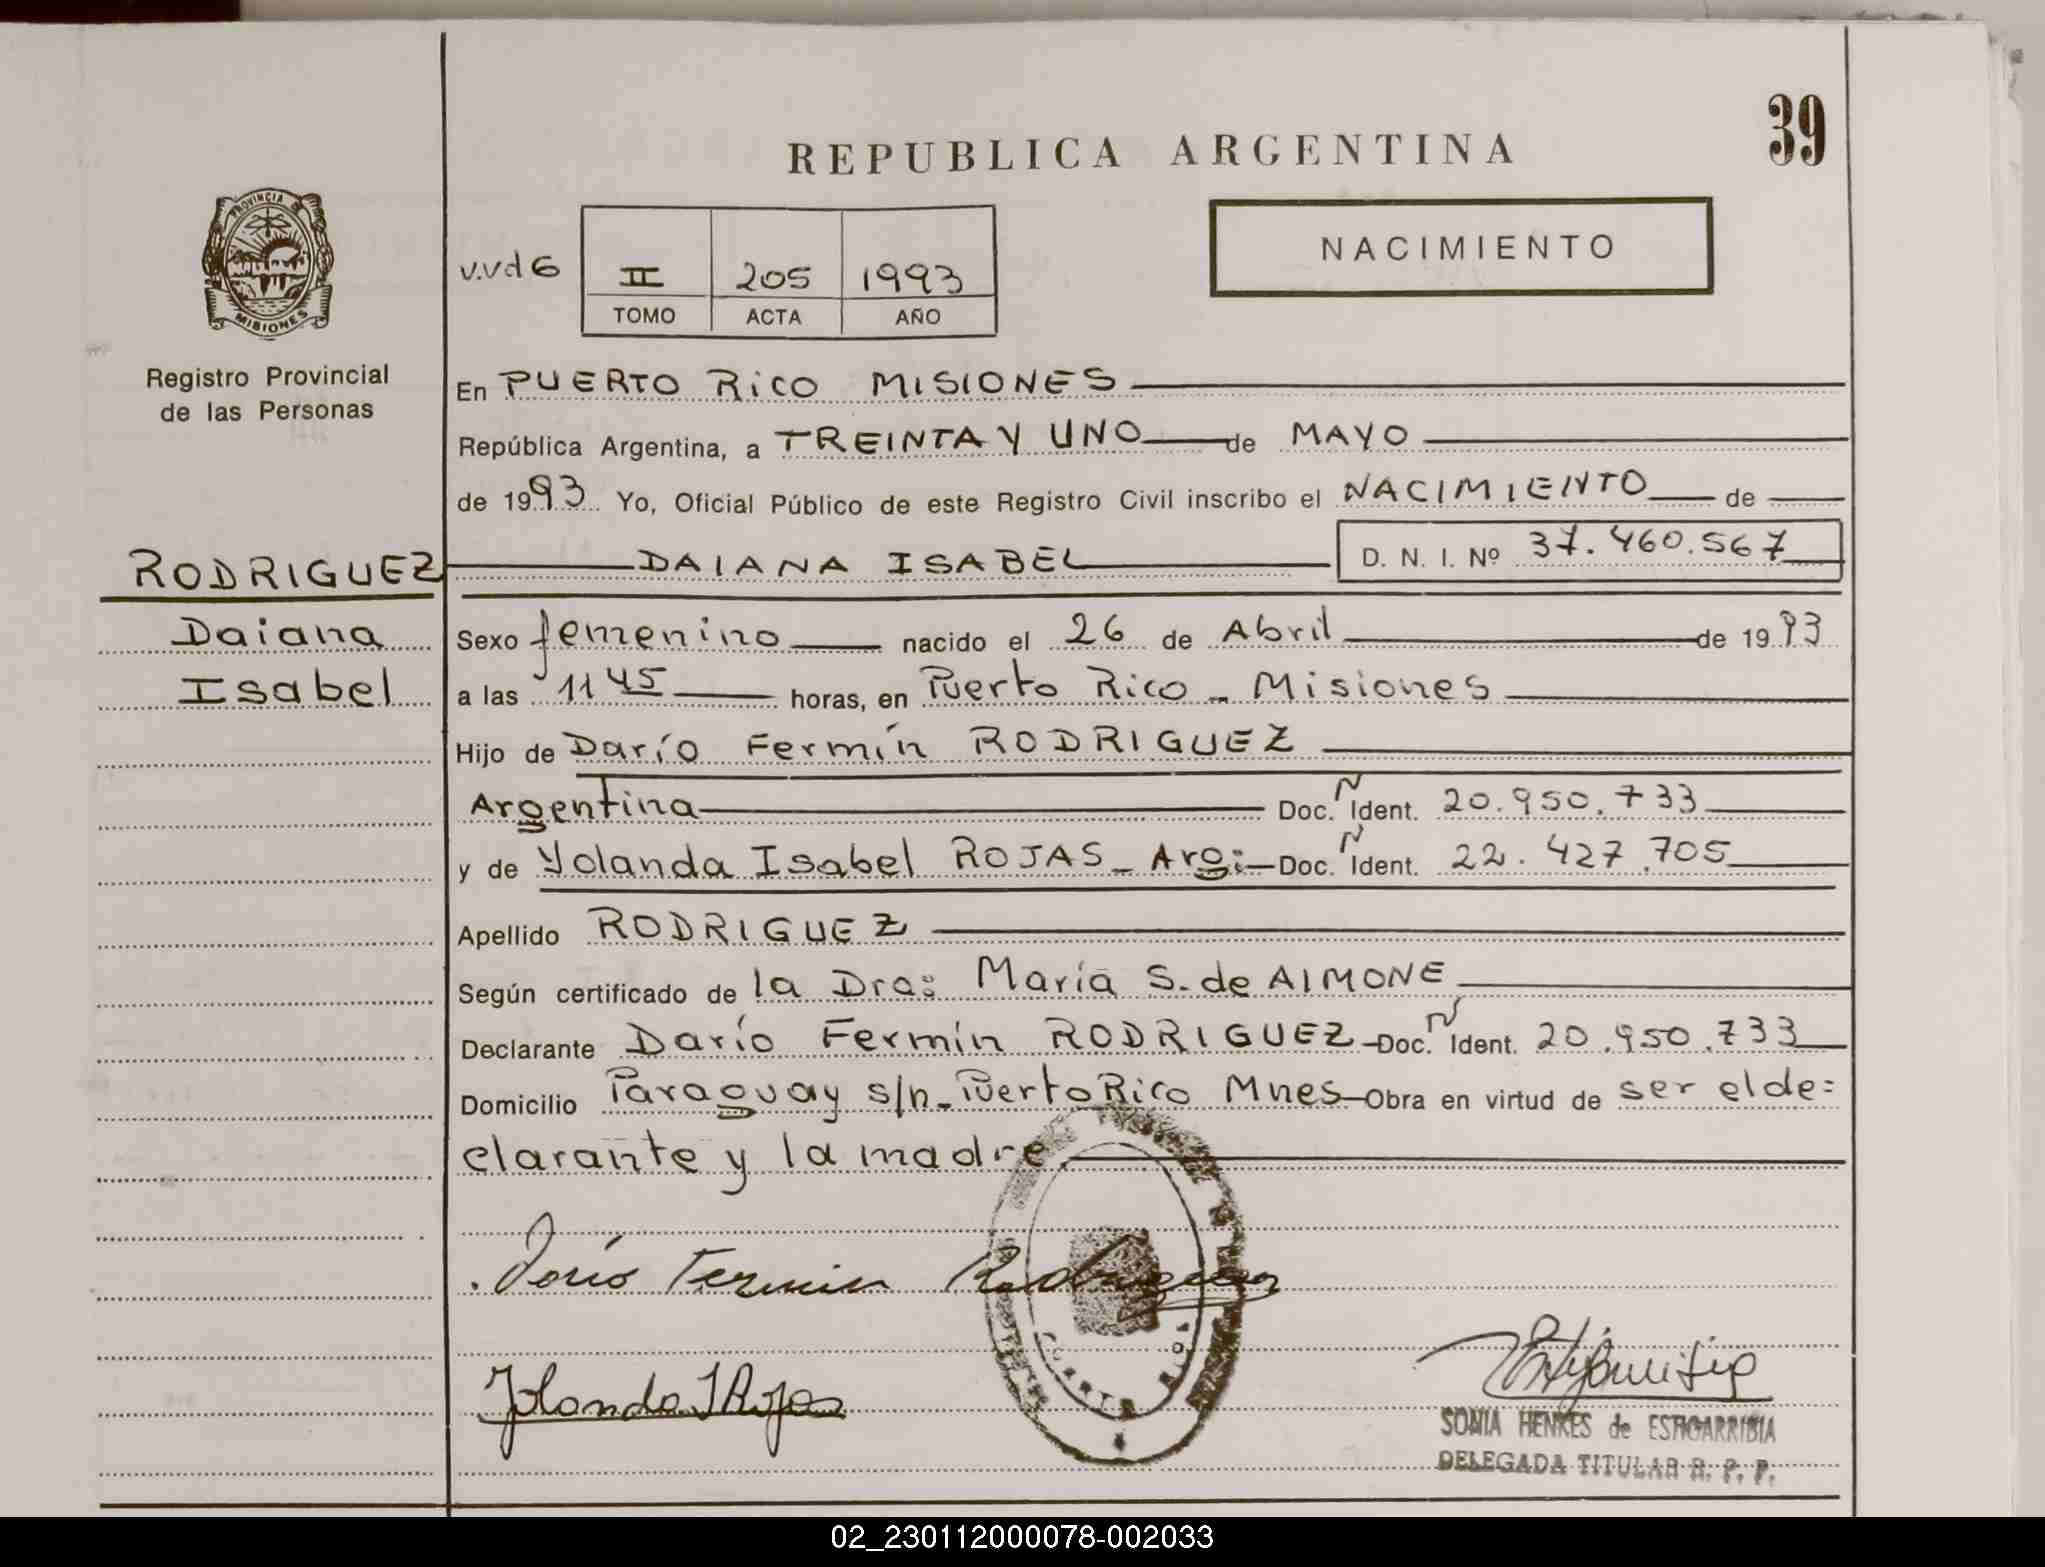 39
REPUBLICA ARGENTINA
PROVINCIA DE
MISIONES
Registro Provincial
de las Personas
NACIMIENTO
v.vd6 II 205 1993
TOMO ACTA AÑO
En PUERTO RICO MISIONES
República Argentina, a TREINTA Y UNO de MAYO
de 1993 Yo, Oficial Público de este Registro Civil inscribo el NACIMIENTO de
RODRIGUEZ DAIANA ISABEL D. N. I. Nº 37.460.567
Daiana
Isabel
Sexo femenino nacido el 26 de Abril de 1993
a las 11 45 horas, en Puerto Rico - Misiones
Hijo de Darío Fermín RODRIGUEZ
Argentina Doc. N Ident. 20.950.733
y de Yolanda Isabel ROJAS - Arg: Doc. N Ident. 22.427.705
Apellido RODRIGUEZ
Según certificado de la Dra: María S. de AIMONE
Declarante Darío Fermín RODRIGUEZ Doc. N Ident. 20.950.733
Domicilio Paraguay s/n - Puerto Rico Mnes Obra en virtud de ser el de=
clarante y la madre
Darío Fermin Rodriguez
PUERTO RICO
Yolanda I Rojas
SONIA HENKES de ESTIGARRIBIA
DELEGADA TITULAR R. P. P.
02_230112000078-002033